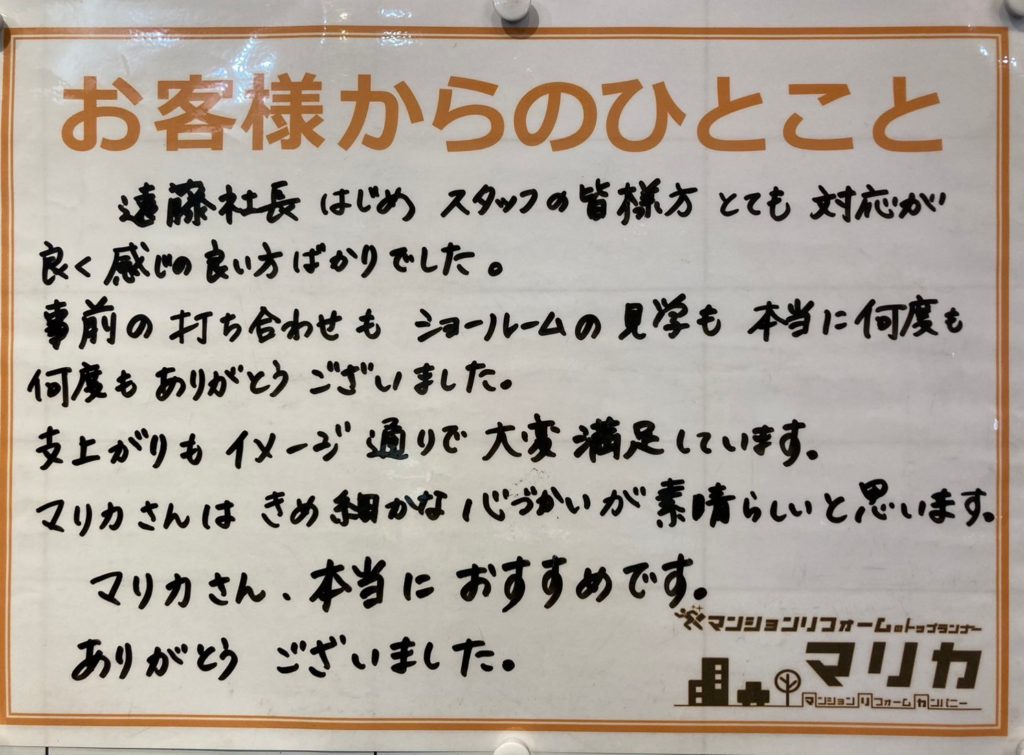 お客様からのひとこと
遠藤社長 はじめ スタッフの皆様方 とても 対応が
良く 感じの良い方ばかりでした。
事前の 打ち合わせも ショールームの 見学も 本当に何度も
何度も ありがとう ございました。
支上がりも イメージ 通りで 大変 満足しています。
マリカさんは きめ細かな 心づかいが 素晴らしいと思います。
マリカさん、本当に おすすめです。
ありがとう ございました。
マンションリフォームのトップランナー
マリカ
マンションリフォームカンパニー